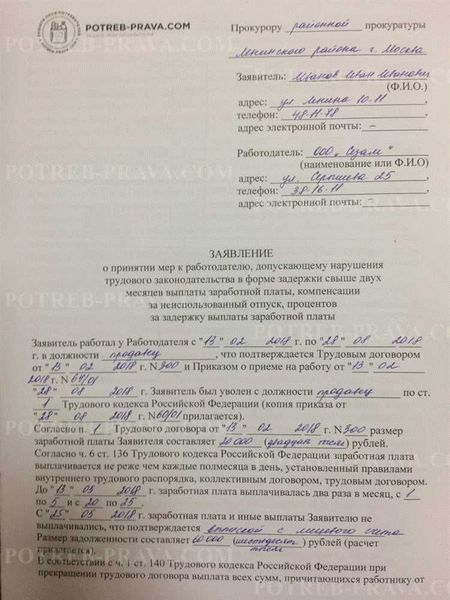 POTREB-PRAVA.COM
Прокурору районной прокуратуры
Ленинского района г. Москва
Заявитель: Иванов Иван Иванович
(Ф.И.О.)
адрес: ул Ленина 10-11,
телефон: 48-11-78,
адрес электронной почты: –
Работодатель: ООО "Сезам"
(наименование или Ф.И.О)
адрес: ул. Серышева 25,
телефон: 38-16-11,
адрес электронной почты: –
ЗАЯВЛЕНИЕ
о принятии мер к работодателю, допускающему нарушения
трудового законодательства в форме задержки свыше двух
месяцев выплаты заработной платы, компенсации
за неиспользованный отпуск, процентов
за задержку выплаты заработной платы
Заявитель работал у Работодателя с "13" 02 2018 г. по "28" 08 2018
г. в должности продавец, что подтверждается Трудовым договором
от "13" 02 2018 г. N 300 и Приказом о приеме на работу от "13" 02
2018 г. N 64/01
"28" 08 2018 г. Заявитель был уволен с должности продавец по ст.
1 Трудового кодекса Российской Федерации (копия приказа от
"28" 08 2018 г. N 60/01 прилагается).
Согласно п. 1 Трудового договора от "13" 02 2018 г. N 300 размер
заработной платы Заявителя составляет 20 000 (двадцать тысяч) рублей.
Согласно ч. 6 ст. 136 Трудового кодекса Российской Федерации заработная плата
выплачивается не реже чем каждые полмесяца в день, установленный правилами
внутреннего трудового распорядка, коллективным договором, трудовым договором.
До "13" 05 2018 г. заработная плата выплачивалась два раза в месяц, с 1
по 5 и с 20 по 25.
С "25" 05 2018 г. заработная плата и иные выплаты Заявителю не
выплачивались, что подтверждается выпиской с лицевого счета
Размер задолженности составляет 60 000 (шестьдесят тысяч) рублей (расчет
прилагается).
В соответствии с ч. 1 ст. 140 Трудового кодекса Российской Федерации при
прекращении трудового договора выплата всех сумм, причитающихся работнику от